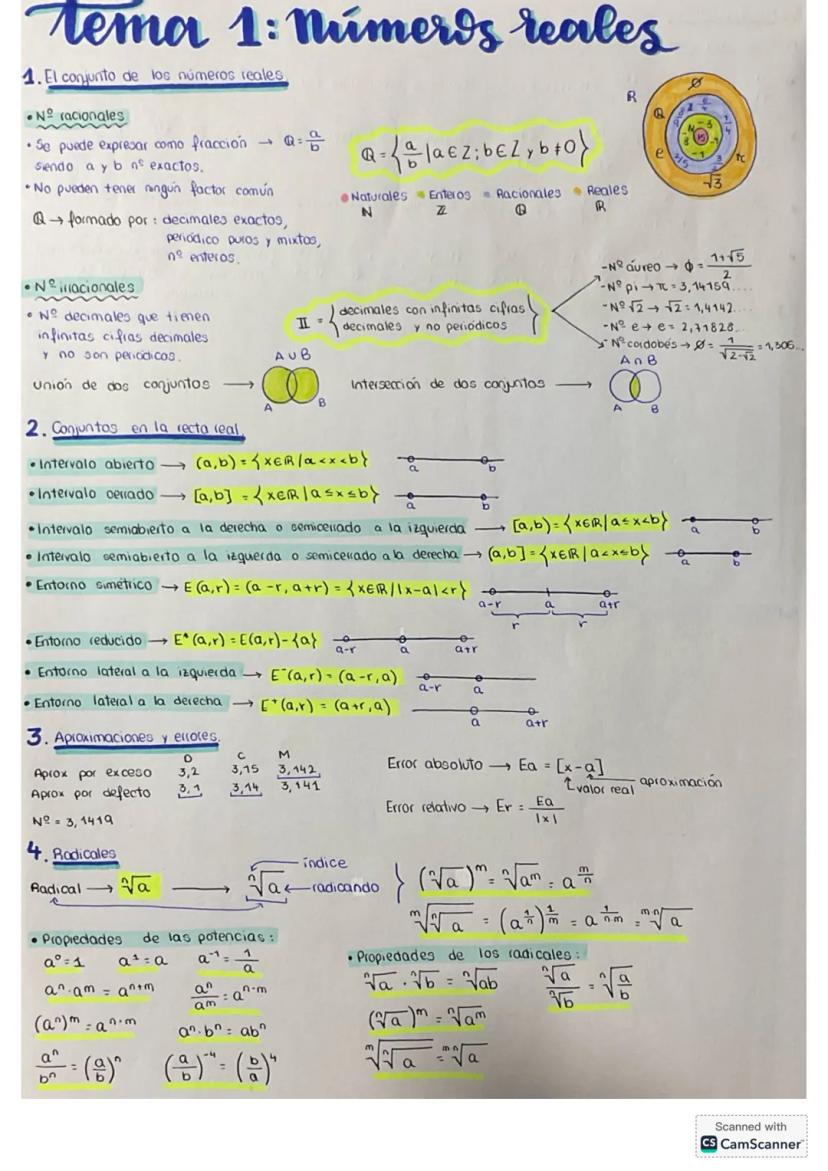 Tema 1: Números reales
1. El conjunto de los números reales.
• Nº racionales
• Se puede expresar como fracción → Q = a/b
siendo a y b nº exactos.
• No pueden tener ningún factor común
Q → formado por: decimales exactos,
periódico puros y mixtos,
nº enteros.
Q = {a/b | a ∈ Z; b ∈ Z y b ≠ 0}
Naturales Enteros Racionales Reales
N Z Q R
R
Q
e
π
√3
• Nº irracionales
• Nº decimales que tienen
infinitas cifras decimales
y no son periódicos.
II = {decimales con infinitas cifras
decimales y no periódicos}
- Nº áureo → Φ = 1+√5/2
- Nº pi → π = 3,14159....
- Nº √2 → √2 = 1,4142....
- Nº e → e = 2,71828...
- Nº cordobés → Ø = 1/√2-√2 = 1,306...
Unión de dos conjuntos → A ∪ B
A B
Intersección de dos conjuntos → A ∩ B
A B
2. Conjuntos en la recta real.
• Intervalo abierto → (a,b) = {x∈R / a<x<b} a b
• Intervalo cerrado → [a,b] = {x∈R | a≤x≤b} a b
• Intervalo semiabierto a la derecha o semicerrado a la izquierda → [a,b) = {x∈R | a≤x<b} a b
• Intervalo semiabierto a la izquierda o semicerrado a la derecha → (a,b] = {x∈R | a<x≤b} a b
• Entorno simétrico → E(a,r) = (a-r, a+r) = {x∈R / |x-a|<r} a-r a a+r
r r
• Entorno reducido → E*(a,r) = E(a,r)-{a} a-r a a+r
• Entorno lateral a la izquierda → E⁻(a,r) = (a-r,a) a-r a
• Entorno lateral a la derecha → E⁺(a,r) = (a+r,a) a a+r
3. Aproximaciones y errores.
D C M
Aprox por exceso 3,2 3,15 3,142
Aprox por defecto 3,1 3,14 3,141
Nº = 3,1419
Error absoluto → Ea = [x-a]
valor real aproximación
Error relativo → Er = Ea/|x|
4. Radicales
Radical → ⁿ√a → ⁿ√a
índice
radicando
(ⁿ√a)ᵐ = ⁿ√aᵐ = a^(m/n)
ᵐ√ⁿ√a = (a^(1/n))^(1/m) = a^(1/n·m) = ᵐ·ⁿ√a
• Propiedades de las potencias:
a⁰ = 1 a¹ = a a⁻¹ = 1/a
aⁿ·aᵐ = aⁿ⁺ᵐ aⁿ/aᵐ = aⁿ⁻ᵐ
(aⁿ)ᵐ = aⁿ·ᵐ aⁿ·bⁿ = abⁿ
aⁿ/bⁿ = (a/b)ⁿ (a/b)⁻⁴ = (b/a)⁴
• Propiedades de los radicales:
ⁿ√a · ⁿ√b = ⁿ√ab ⁿ√a/ⁿ√b = ⁿ√a/b
(ⁿ√a)ᵐ = ⁿ√aᵐ
ᵐ√ⁿ√a = ᵐ·ⁿ√a
Scanned with
CS CamScanner